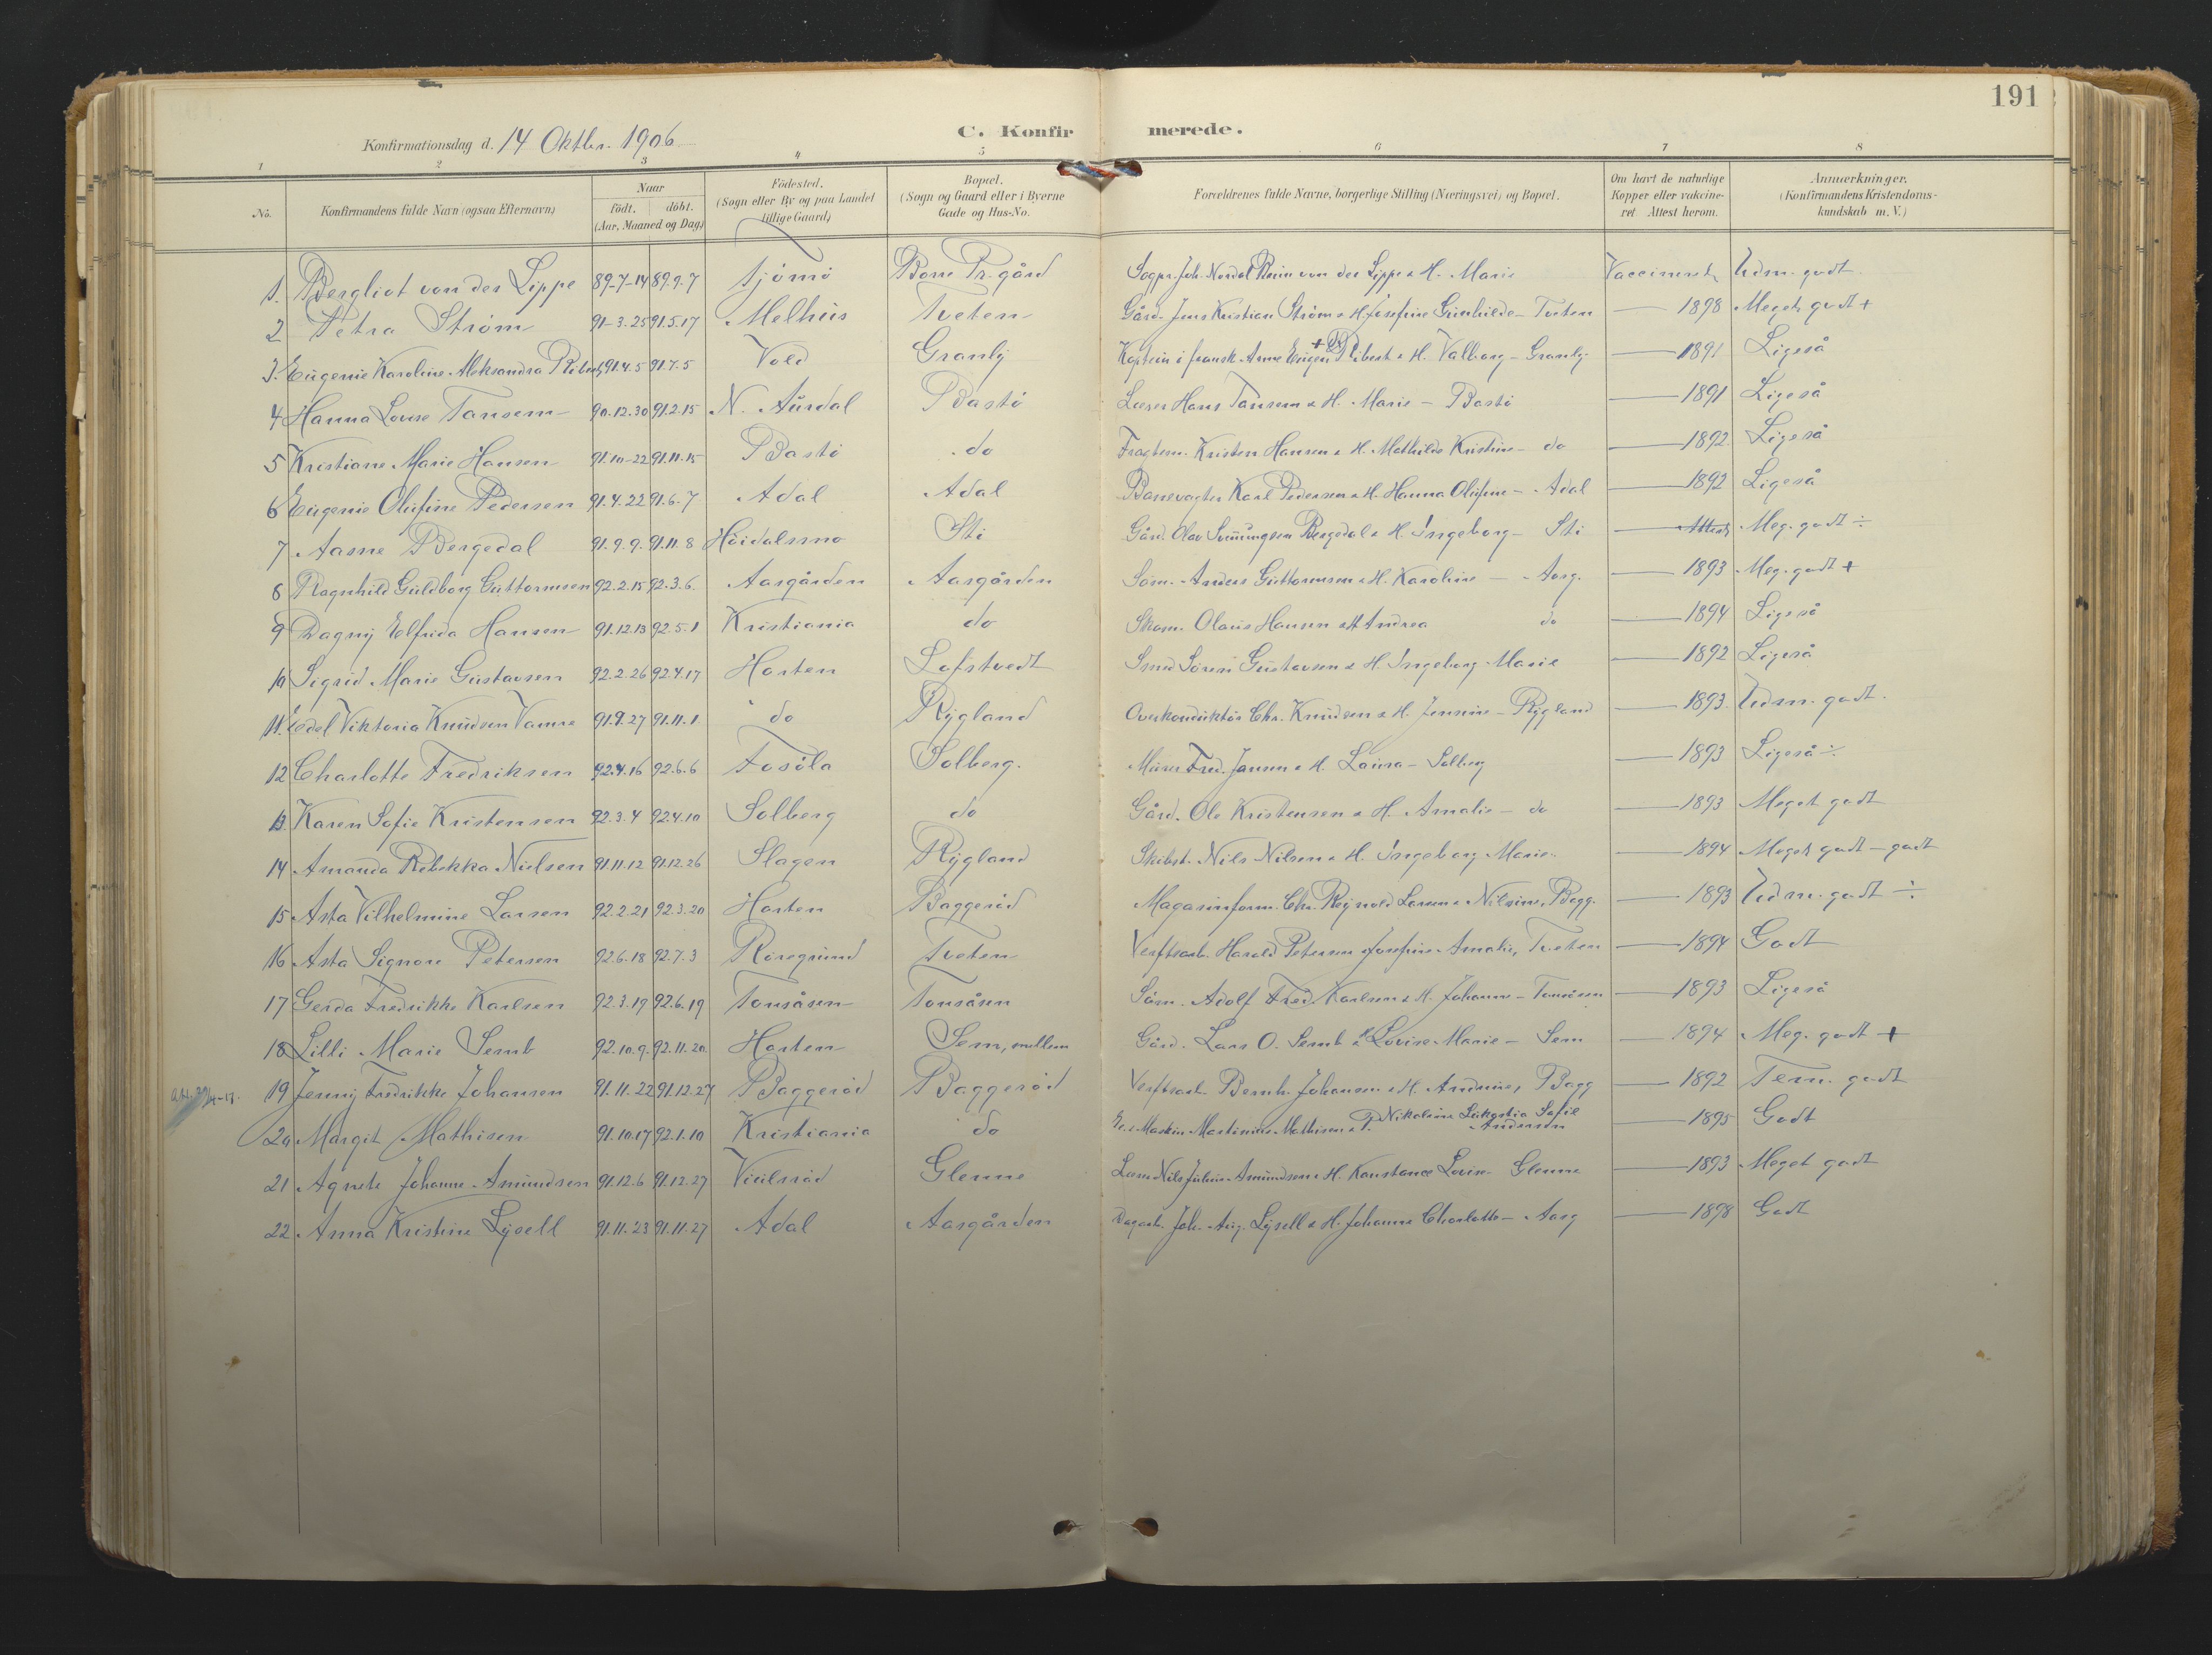 191
Konfirmationsdag d. 14 Oktbr. 1906
C. Konfir merede.
1 2 3 4 5 6 7 8
No. Konfirmandens fulde Navn (ogsaa Efternavn) Naar født. døbt. (Aar, Maaned og Dag) Fødested. (Sogn eller By og paa Landet tillige Gaard) Bopæl. (Sogn og Gaard eller i Byerne Gade og Hus-No. Forældrenes fulde Navne, borgerlige Stilling (Næringsvei) og Bopæl. Om havt de naturlige Kopper eller vaccineret Attest herom. Anmærkninger. (Konfirmandens Kristendomskundskab m. V.)
1. Bergliot von der Lippe 89-7-14 89.9.7 Tjömö Borre Pr.gård Sogpr. Joh. Nordal Bruun von der Lippe & H. Marie Vaccineret Udm. godt
2 Petra Strøm 91-3.25 91.5.17 Melhus Tveten Gård. Jens Kristian Strøm & H. Josefine Gunhilde - Tveten — 1898 Meget godt +
3. Eugenie Karoline Aleksandra Ribert 91.4.5 91.7.5 Vold Granly Kaptein i fransk Arme Eugen Ribert & H. Valborg - Granly — 1891 Ligeså
4 Hanna Lovise Tansem 90.12.30 91.2.15 N. Aurdal Bastö Læser Hans Tansem & H. Marie - Bastö — 1891 Ligeså
5 Kristiane Marie Hansen 91.10-22 91.11.15 Bastö do Fragtem. Kristen Hansen & H. Mathilde Kristine - do — 1892 Ligeså
6 Eugenie Olufine Pedersen 91.4.22 91.6.7 Adal Adal Banevogter Karl Pedersen & H. Hanna Olufine - Adal — 1892 Ligeså
7 Aasne Bergedal 91.9.9. 91.11.8 Höidalsmo Sti Gård. Olav Sveinungsen Bergedal & H. Ingeborg - Sti — Attest Meg. godt ÷
8 Ragnhild Guldborg Guttormsen 92.2.15 92.3.6. Aasgården Aasgården Søm. Anders Guttormsen & H. Karoline - Aasg. — 1893 Meg. godt +
9 Dagny Elfrida Hansen 91.12.13 92.5.1 Kristiania do Skom. Olaus Hansen & H Andrea do — 1894 Ligeså
10 Sigrid Marie Gustavsen 92.2.26 92.4.17 Horten Lofstvedt Smed Sören Gustavsen & H. Ingeborg Marie — 1892 Ligeså
11. Edel Viktoria Knudsen Vamre 91.9.27 91.11.1 do Rygland Overkonduktör Chr. Knudsen & H. Jensine - Rygland — 1893 Udm. godt.
12 Charlotte Fredriksen 92.4.16 92.6.6 Fosöla Solberg. Murer Fred. Jansen & H. Laura - Solberg — 1893 Ligeså ÷
13. Karen Sofie Kristensen 92.3.4 92.4.10 Solberg do Gård. Ole Kristensen & H. Amalie - do — 1893 Meget godt
14 Amanda Rebekka Nielsen 91.11.12 91.12.26 Slagen Rygland Skibst. Nils Nilsen & H. Ingeborg Marie — 1894 Meget godt - godt
15 Asta Vilhelmine Larsen 92.2.21 92.3.20 Horten Baggeröd Magasinform. Chr. Reynold Larsen & Nilsine, Bagg. — 1893 Udm. godt ÷
16 Asta Signore Petersen 92.6.18 92.7.3 Röregrund Tveten Verftsarb. Harald Petersen Josefine Amalie, Tveten — 1894 Godt
17 Gerda Fredrikke Karlsen 92.3.19 92.6.19 Tonsåsen Tonsåsen Søm. Adolf Fred. Karlsen & H. Johanne - Tonsåsen — 1893 Ligeså
18 Lilli Marie Semb 92.10.9. 92.11.20. Horten Sem, mellem Gård. Lars O. Semb & Lovise Marie - Sem — 1894 Meg. godt +
19 Jenny Fredrikke Johansen 91.11.22 91.12.27 Baggeröd Baggeröd Verftsarb. Bernh. Johansen & H. Andrine, Bagg — 1892 Tem. godt
20 Margit Mathisen 91.10.17 92.1.10 Kristiania do Maskin. Martinius Mathisen & P. Nikoline Sofie Andersen — 1895 Godt
21 Agnete Johanne Amundsen 91.12.6 91.12.27 Glenne Nils Julius Amundsen & H. Konstance Lovise Glenne — 1893 Meget godt
22 Anna Kristine Lysell 91.11.23 91.11.27 Adal Aasgården Dagarb. Joh. Aug. Lysell & H. Johanne Charlotte - Aasg — 1898 Godt